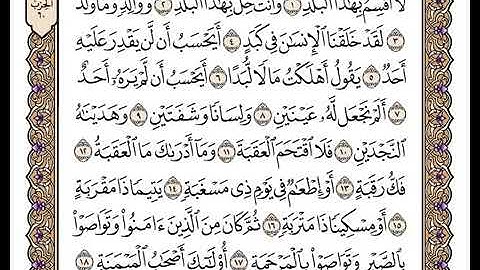 لَآ أُقْسِمُ بِهَٰذَا ٱلْبَلَدِ ۝١ وَأَنتَ حِلٌّۢ بِهَٰذَا ٱلْبَلَدِ ۝٢ وَوَالِدٍ وَمَا وَلَدَ
۝٣ لَقَدْ خَلَقْنَا ٱلْإِنسَٰنَ فِى كَبَدٍ ۝٤ أَيَحْسَبُ أَن لَّن يَقْدِرَ عَلَيْهِ
أَحَدٌ ۝٥ يَقُولُ أَهْلَكْتُ مَالًا لُّبَدًا ۝٦ أَيَحْسَبُ أَن لَّمْ يَرَهُۥٓ أَحَدٌ
۝٧ أَلَمْ نَجْعَل لَّهُۥ عَيْنَيْنِ ۝٨ وَلِسَانًا وَشَفَتَيْنِ ۝٩ وَهَدَيْنَٰهُ
ٱلنَّجْدَيْنِ ۝١٠ فَلَا ٱقْتَحَمَ ٱلْعَقَبَةَ ۝١١ وَمَآ أَدْرَىٰكَ مَا ٱلْعَقَبَةُ ۝١٢
فَكُّ رَقَبَةٍ ۝١٣ أَوْ إِطْعَٰمٌ فِى يَوْمٍ ذِى مَسْغَبَةٍ ۝١٤ يَتِيمًا ذَا مَقْرَبَةٍ
۝١٥ أَوْ مِسْكِينًا ذَا مَتْرَبَةٍ ۝١٦ ثُمَّ كَانَ مِنَ ٱلَّذِينَ ءَامَنُوا۟ وَتَوَاصَوْا۟
بِٱلصَّبْرِ وَتَوَاصَوْا۟ بِٱلْمَرْحَمَةِ ۝١٧ أُو۟لَٰٓئِكَ أَصْحَٰبُ ٱلْمَيْمَنَةِ ۝١٨
الحزب
٦٠